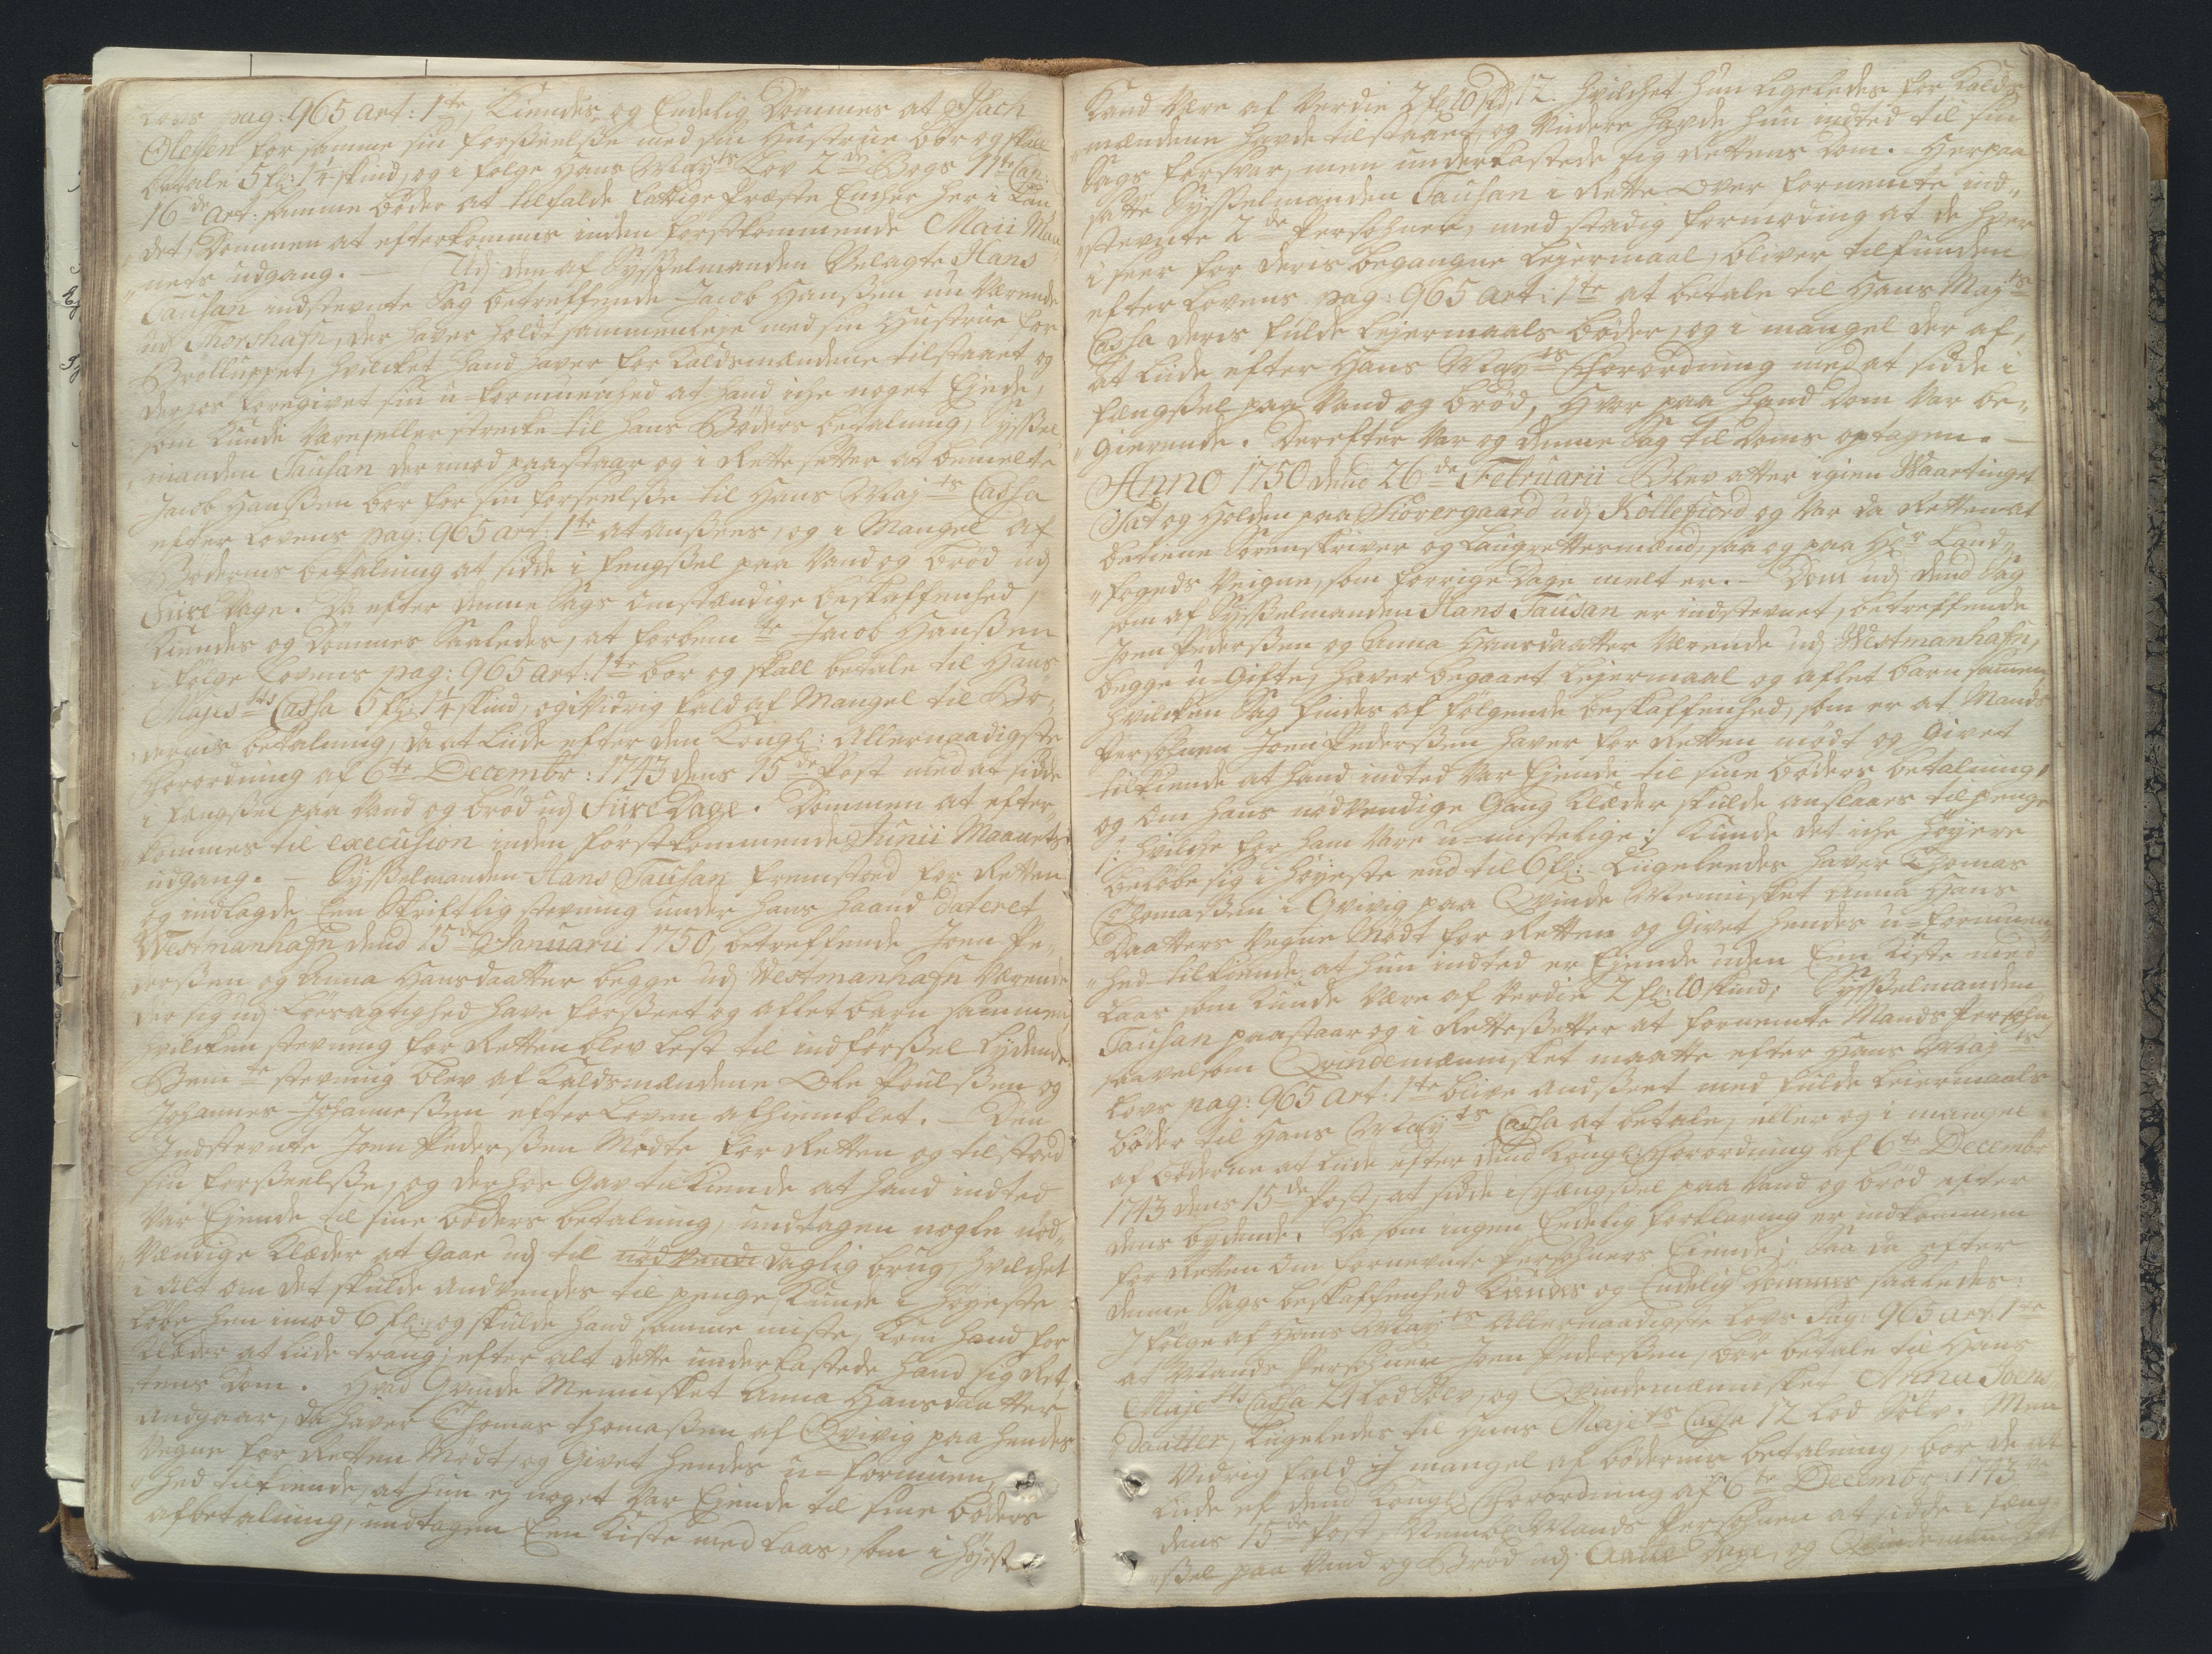 Lovs pag: 965 art: 1te, Kiendes og Endelig Dömmes at Isach
Olesen for samme sin forseelse med sin Hustrue bör og skall
betale 5 fl: 14 skind, og i fölge Hans Mayts Lov 2den Bogs 11te Cap:
16de Art: samme böder at tilfalde fattige Præste Encher her i Lan
det, Dommen at efterkommes inden forstkommende Maii Maa
neds udgang. — Udj den af Sysselmanden Velagte Hans
Tausan indstevnte Sag betreffende Jacob Hanssen nu Værende
udj Thorshafn, der haver holdt sammenleje med sin Hustrue for
Brölluppet, hvilcket hand haver for Kaldsmændene tilstaaet og
derfor foregivet sin u-formuenhed at hand iche noget Ejede,
som kunde være eller strecke til hans Böders betalning, Syssel
manden Tausan derimod paastaar og i Rette setter at bemelte
Jacob Hanssen bör for sin forseelse til Hans Majts Cassa
efter Lovens pag: 965 art: 1te at ansees, og i Mangel af
Bödernes betalning at sidde i fengssel paa Vand og Bröd udj
Fiire Dage. Da efter denne Sags omstændige beskaffenhed,
Kiendes og Dömmes Saaledes, at forbemte Jacob Hanssen
i fölge Lovens pag: 965 art: 1te bör og skall betale til Hans
Majests Cassa 5 fl: 14 skind, og i Vidrig fald af Mangel til Bö
dernes betalning, da at liide efter den Kongl: Allernaadigste
Forordning af 6te Decembr: 1743 dens 15de Post med at sidde
i fængssel paa Vand og bröd udj Fiire Dage. Dommen at efter
kommes til execusion inden förstkommende Junii Maanets
udgang. — Sysselmanden Hans Tausan fremstoed for Retten
og indlagde Een Skriftlig stevning under hans Haand Dateret
Westmanhafn dend 15de Januarii 1750, betreffende Joen Pe
derssen og Anna Hansdaatter begge udj Westmanhafn Værende
der sig udj Lösagtighed have forseet og aflet barn sammen,
hvilcken stevning for Retten blev læst til indförssel lydende.
Bemte stevning blev af Kaldsmændene Ole Poulssen og
Johannes Johannessen efter Loven afhiemblet. — Den
Indstevnte Joen Pederssen Mödte for Retten og tilstoed
sin forseelse, og derhos Gav tilkiende at hand indted
var Ejende til sine böders betalning, undtagen nogle nöd
vændige Klæder at gaae udj til nödvendi daglig brug, hvilchet
i alt om det skulde andvendes til penge, kunde i höyeste
löbe hen imod 6 fl: og skulde hand samme miste, kom hand for
Klæder at liide trang; efter alt dette underkastede hand sig Ret
tens Dom. Hvad Qvinde Mennisket Anna Hansdaatter
andgaar, da haver Thomas Thomassen af Qvivig paa hendes
Vegne for Retten Mödt, og Givet hendes u-formuen
hed tilkiende, at hun ej noget var Ejende til sine böders
afbetalning, undtagen Een Kiste med Laas, som i höyeste
kand være af Verdie 2 fl: 10 skd: hvilchet hun ligeledes for Kalds
mændene havde tilstaaet, og Viidere havde hun indted til sin
Sags forsvar, men underkastede sig Rettens Dom. Herpaa
satte Sysselmanden Tausan i Rette over fornemte ind
stevnte 2de Persohner, med stadig formoding at de hver
i seer for deris begangne Lejermaal, bliver tilfunden
efter Lovens pag: 965 art: 1te at betale til Hans Mayts
Cassa deris fulde Lejermaals böder, og i mangel der af,
at liide efter Hans Mayts Forordning med at sidde i
fængssel paa Vand og bröd, hvor paa hand Dom var be
gierende. Derefter var og denne Sag til Doms optagen. —
Anno 1750 dend 26de Februarii blev atter igien Waartinget
Sat og Holden paa Siovergaard udj Kollefiord og var da Retten at
betiene Sorenskriver og Laugrettesmænd, saa og paa Hr Land
fogeds Veigne, som forrige Dage melt er. — Dom udj dend Sag
som af Sysselmanden Hans Tausan er indstevnet, betreffende
Joen Pederssen og Anna Hansdaatter Værende udj Westmanhafn,
begge u-Gifte, haver begaaet Lejermaal og aflet barn sammen,
hvilcken Sag findes af fölgende beskaffenhed, som er at Mands
Persohnen Joen Pederssen haver for Retten mödt og Givet
tilkiende at hand indted var Ejende til sine böders betalning,
og om hans nödvendige Gang Klæder skulde anslaaes til penge
/: hvilche for ham vare u-mistelige :/ kunde det iche höyere
belöbe sig i höyeste end til 6 fl: Liigeleedes haver Thomas
Thomassen i Qvivig paa Qvinde Mennisket Anna Hans
Daatters Vegne Mödt for Retten og Givet hendes u-formuen
hed tilkiende, at hun indted er Ejende uden Een Kiste med
Laas som kunde være af Verdie 2 fl: 10 skind, Sysselmanden
Tausan paastaar og i Rettesetter at fornemte Mands Persohn
saavelsom Qvindemennisket maatte efter Hans Mayts
Lovs pag: 965 art: 1te blive andseet med fulde Leiermaals
böder til Hans Mayts Cassa at betale, eller og i mangel
af böderne at liide efter dend Kongl Forordning af 6te Decembr
1743 dens 15de Post, at sidde i Fængssel paa Vand og bröd efter
dens bydende. Da som ingen Endelig forklaring er indkommen
for Retten om fornevnte Persohners Eiende; Saa da efter
denne Sags beskaffenhed Kiendes og Endelig Dömmes saaledes:
I fölge af Hans Mayts Allernaadigste Lovs Pag: 965 art: 1te
at Mands Persohnen Joen Pederssen, bör betale til Hans
Majets Cassa 24 Lod Sölv, og Qvindemennisket Anna Joens
Daatter, Liigeledes til Hans Majets Cassa 12 Lod Sölv. Men
Vidrig fald i mangel af bödernes betalning, bör de at
liide ef dend Kongl Forordning af 6te Decembr: 1743
dens 15de Post, Nembl Mands Persohnen at sidde i fæng
ssel paa Vand og Bröd udj Aatte Dage, og Qvindemennisket